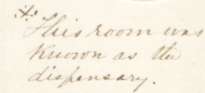 * This room was
known as the
dispensary.